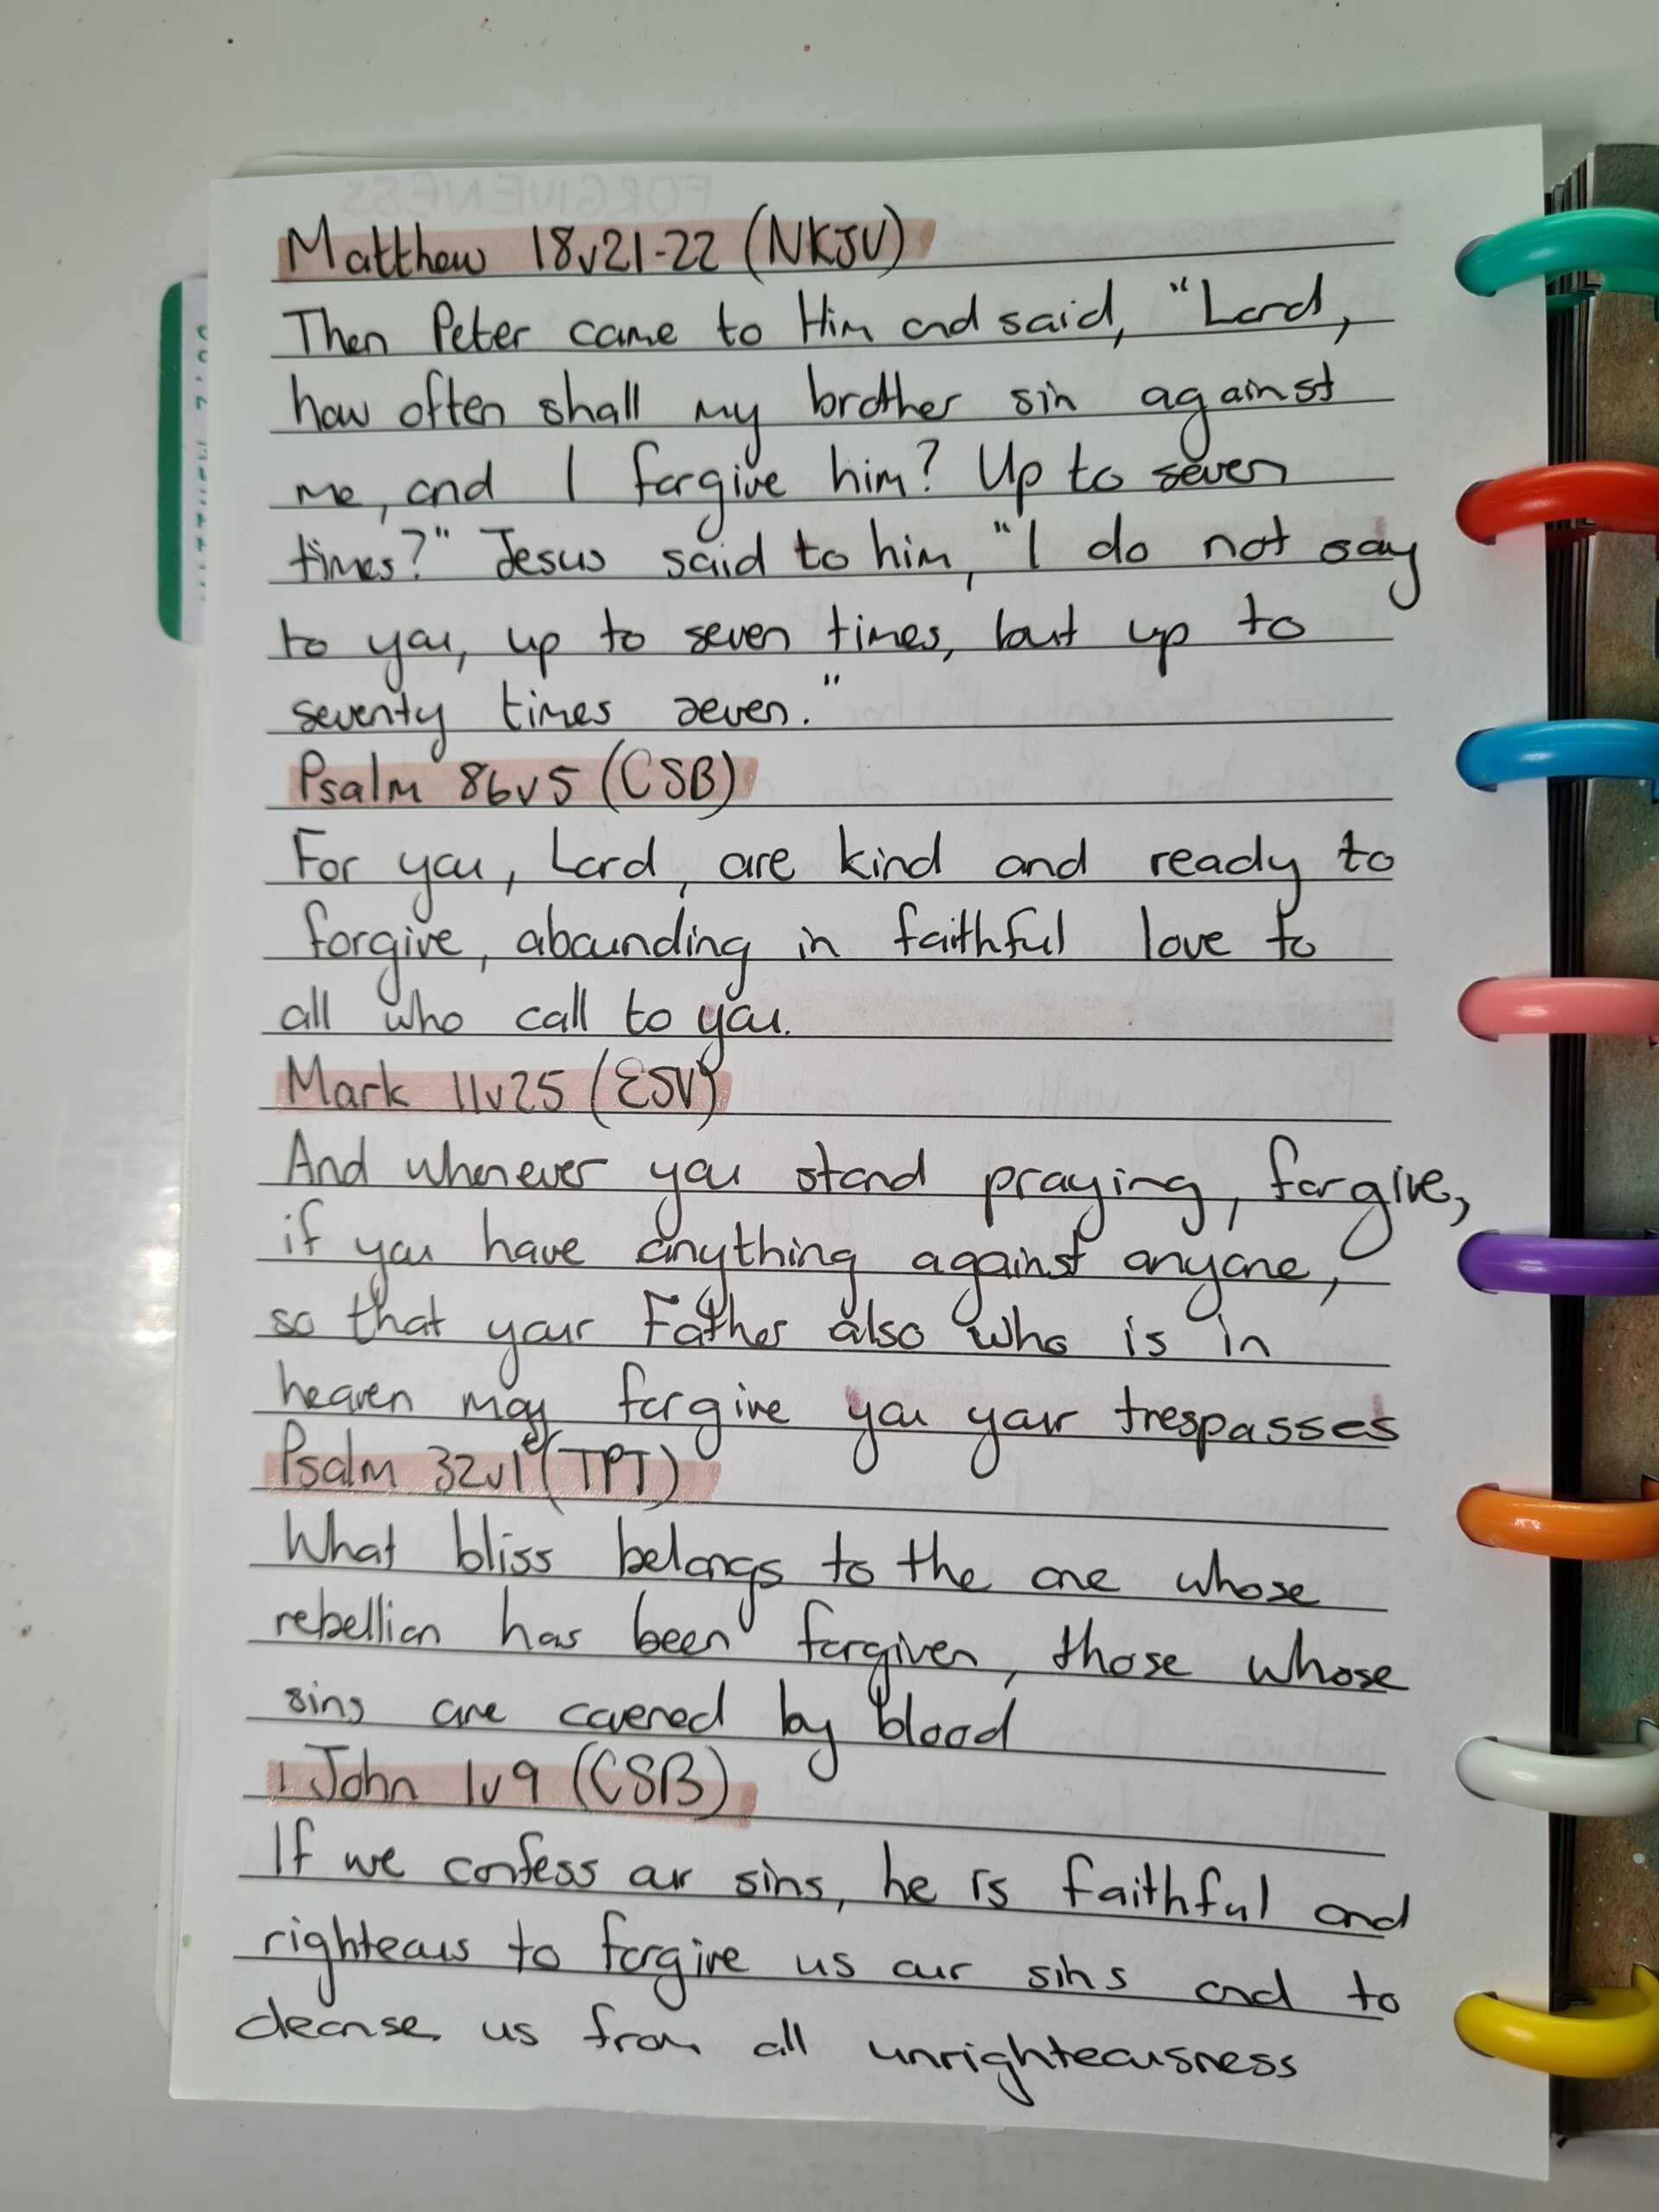 FORGIVENESS
Matthew 18v21-22 (NKJV)
Then Peter came to Him and said, "Lord,
how often shall my brother sin against
me, and I forgive him? Up to seven
times?" Jesus said to him, "I do not say
to you, up to seven times, but up to
seventy times seven."
Psalm 86v5 (CSB)
For you, Lord, are kind and ready to
forgive, abounding in faithful love to
all who call to you.
Mark 11v25 (ESV)
And whenever you stand praying, forgive,
if you have anything against anyone,
so that your Father also who is in
heaven may forgive you your trespasses
Psalm 32v1 (TPT)
What bliss belongs to the one whose
rebellion has been forgiven, those whose
sins are covered by blood
1 John 1v9 (CSB)
If we confess our sins, he is faithful and
righteous to forgive us our sins and to
cleanse us from all unrighteousness